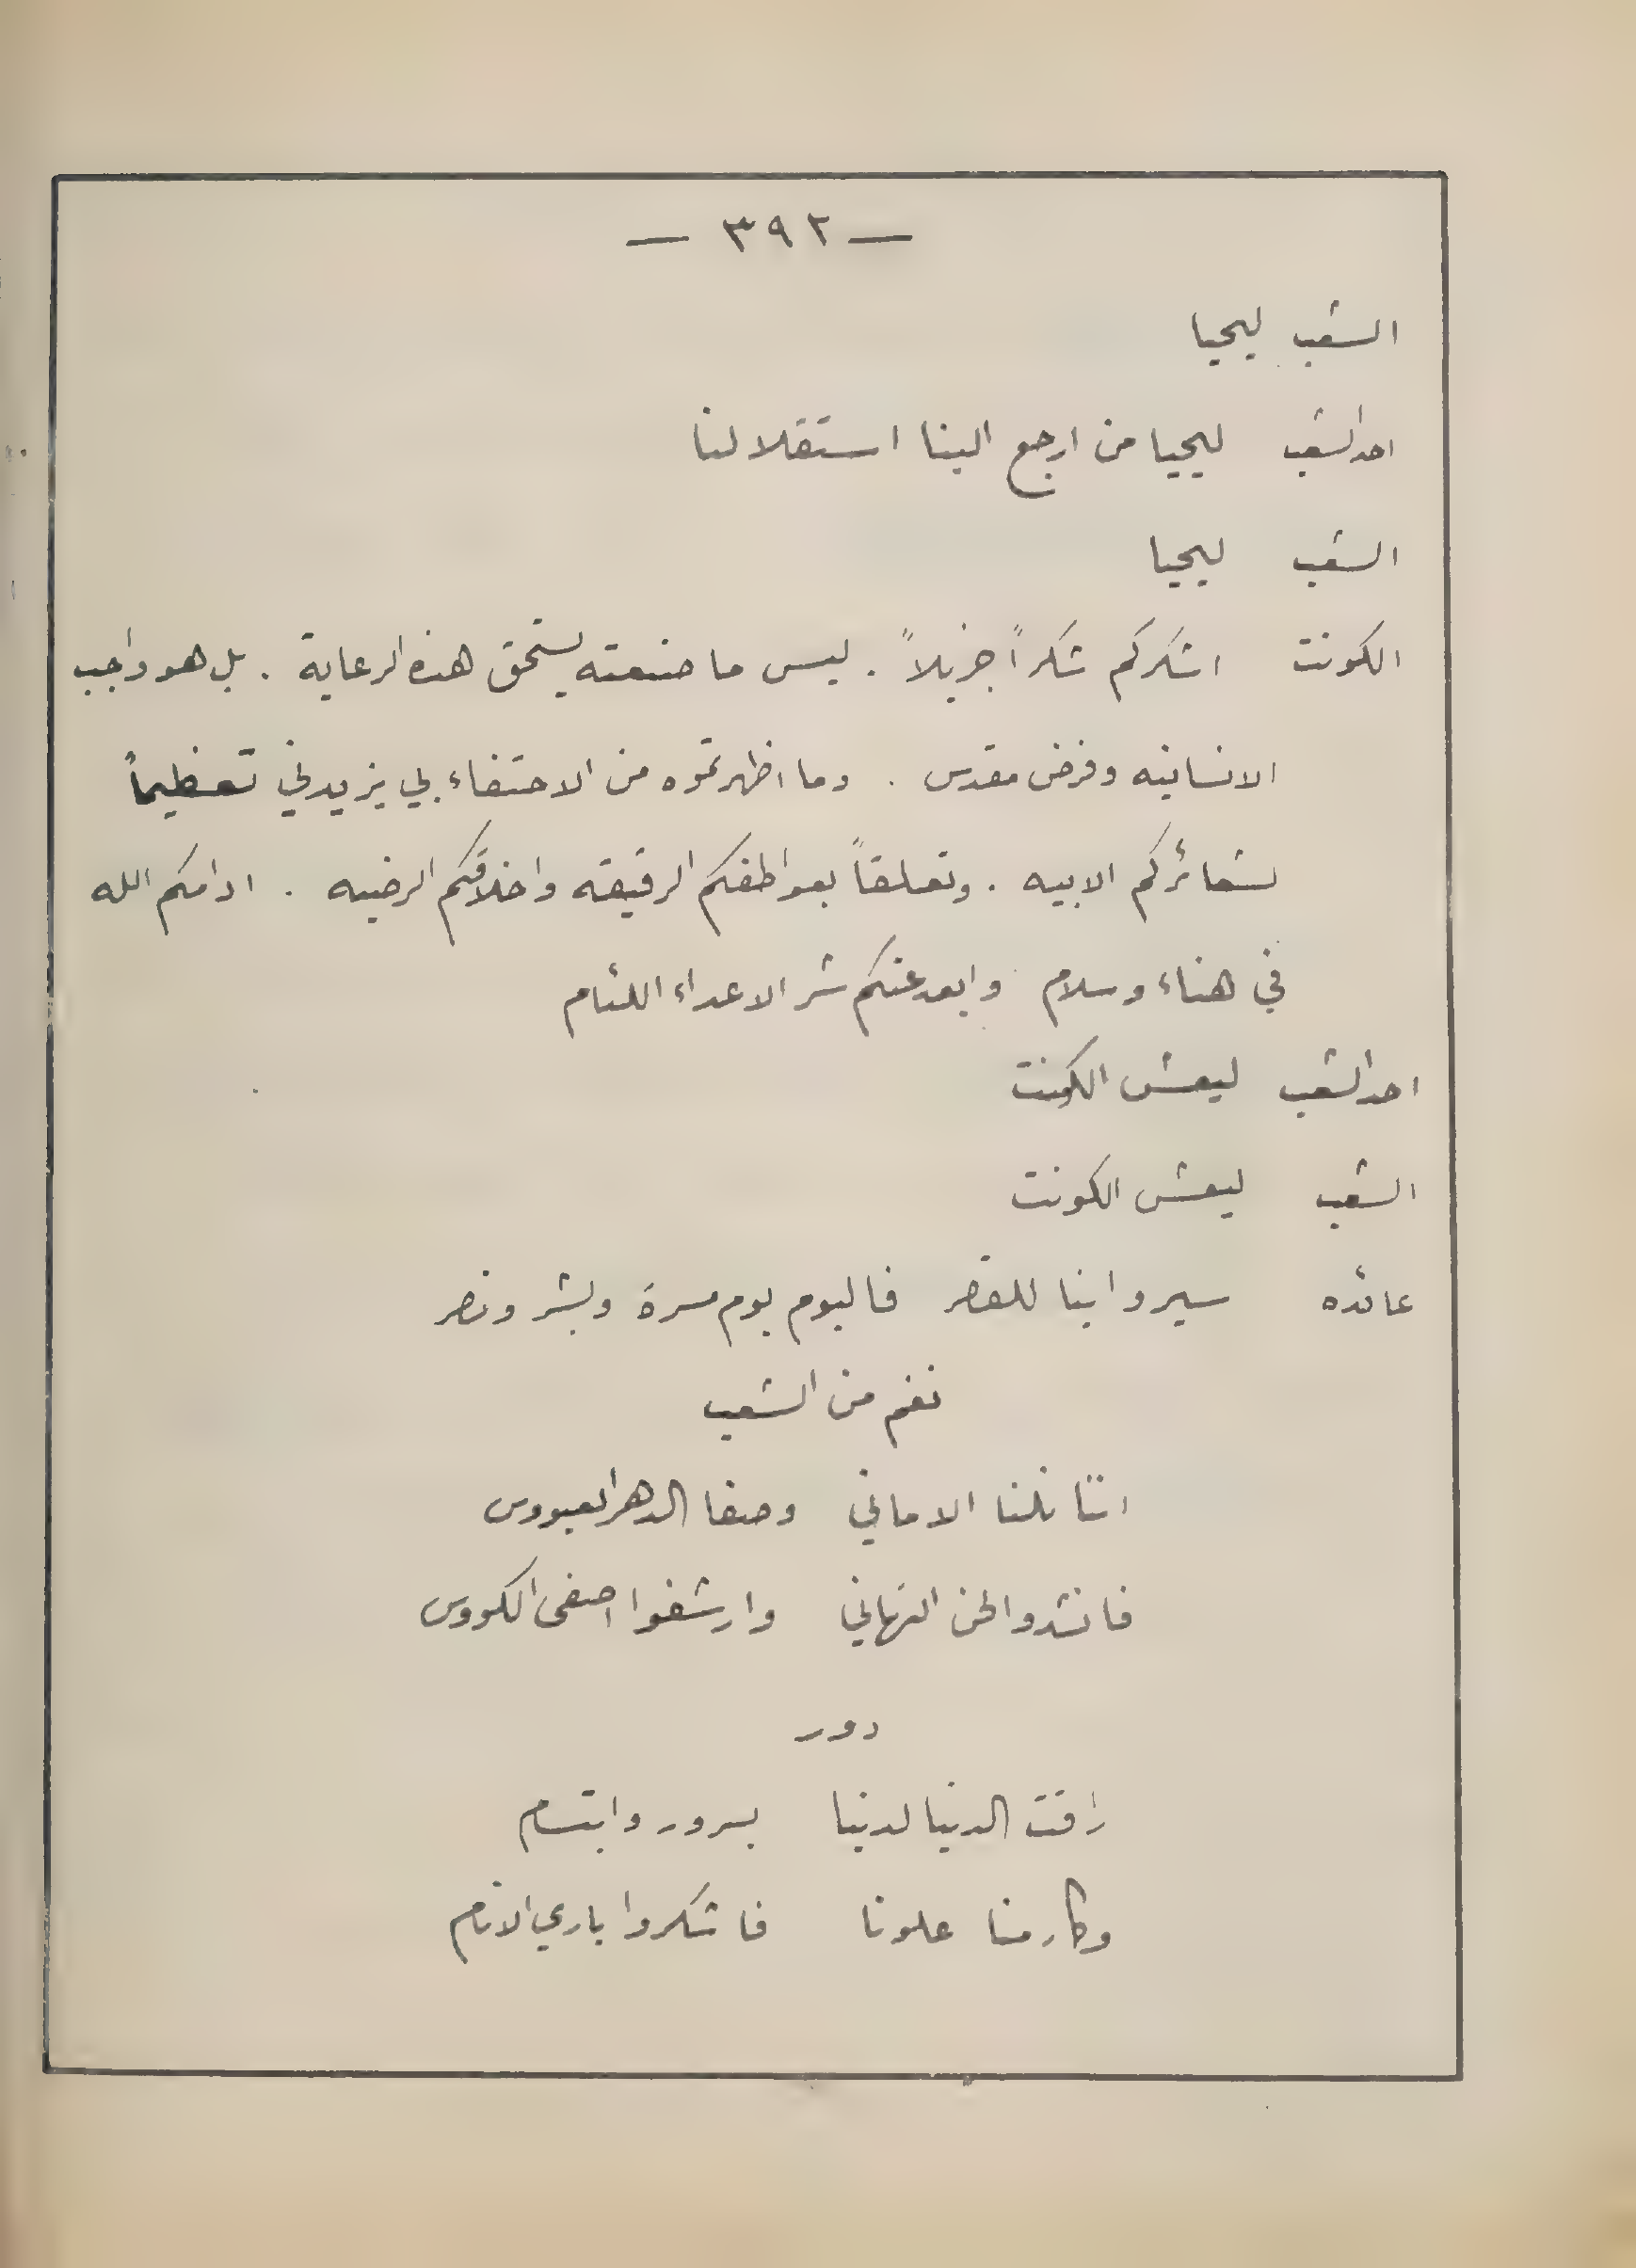 — ٣٩٢ —
الشعب ليحيا
احد الشعب ليحيا من ارجع الينا استقلالنا
الشعب ليحيا
الكونت اشكركم شكراً جزيلاً . ليس ما صنعته يستحق هذه الرعاية . بل هو واجب
الانسانيه وفرض مقدس . وما اظهرتموه من الاحتفاء بي يزيدني تعظيماً
لشعائركم الابيه . وتعلقاً بعواطفكم الرقيقه واخلاقكم الرضيه . ادامكم الله
في هناء وسلام وابعد عنكم شر الاعداء اللئام
احد الشعب ليعش الكونت
الشعب ليعش الكونت
عائده سيروا بنا للقصر فاليوم يوم مسرة وبشر ونصر
نغم من الشعب
اننا نلنا الاماني وصفا الدهر العبووس
فانشدوا لحن التهاني وارشفوا اصفى الكووس
دور
راقت الدنيا لدينا بسرور وابتسام
وكارمنا علونا فاشكروا باري الانام